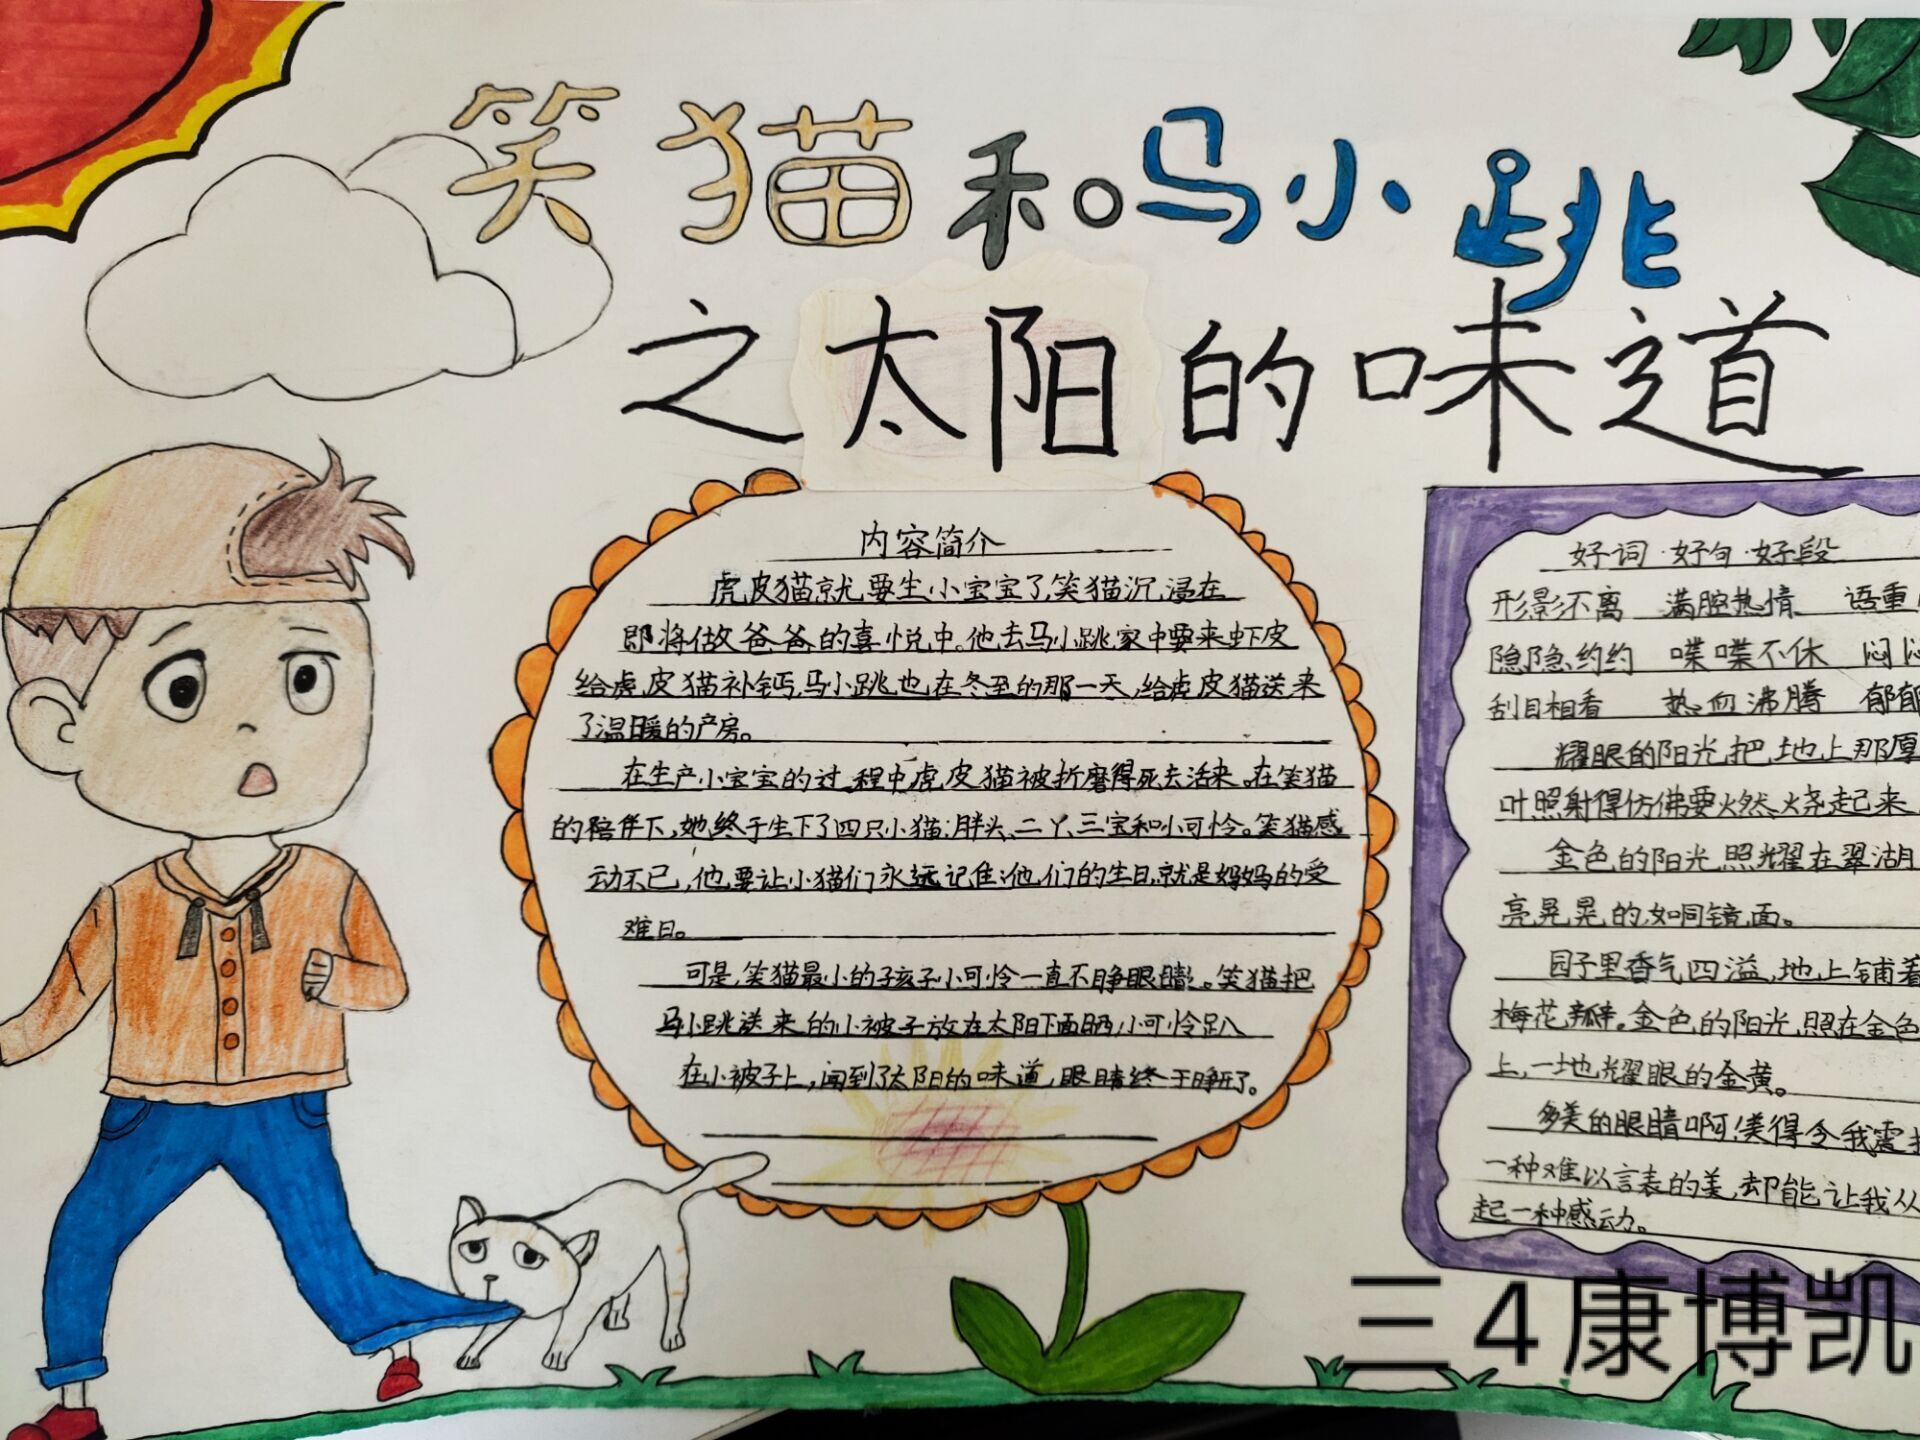 笑猫和马小跳
之太阳的味道
内容简介
虎皮猫就要生小宝宝了,笑猫沉浸在
即将做爸爸的喜悦中。他去马小跳家中要来虾皮
给虎皮猫补钙,马小跳也在冬至的那一天,给虎皮猫送来
了温暖的产房。
在生产小宝宝的过程中虎皮猫被折磨得死去活来。在笑猫
的陪伴下,她终于生下了四只小猫:胖头、二丫、三宝和小可怜。笑猫感
动不已,他要让小猫们永远记住:他们的生日,就是妈妈的受
难日。
可是,笑猫最小的孩子小可怜一直不睁眼睛。笑猫把
马小跳送来的小被子放在太阳下面晒,小可怜趴
在小被子上,闻到了太阳的味道,眼睛终于睁开了。
好词·好句·好段
形影不离 满腔热情 语重
隐隐约约 喋喋不休 闷
刮目相看 热血沸腾 郁郁
耀眼的阳光把地上那厚
叶照射得仿佛要火然火尧起来
金色的阳光照耀在翠湖
亮晃晃的,如同镜面。
园子里香气四溢,地上铺着
梅花瓣。金色的阳光照在金色
上,一地耀眼的金黄。
多美的眼睛啊!美得令我震
一种难以言表的美,却能让我从
起一种感动。
三4康博凯